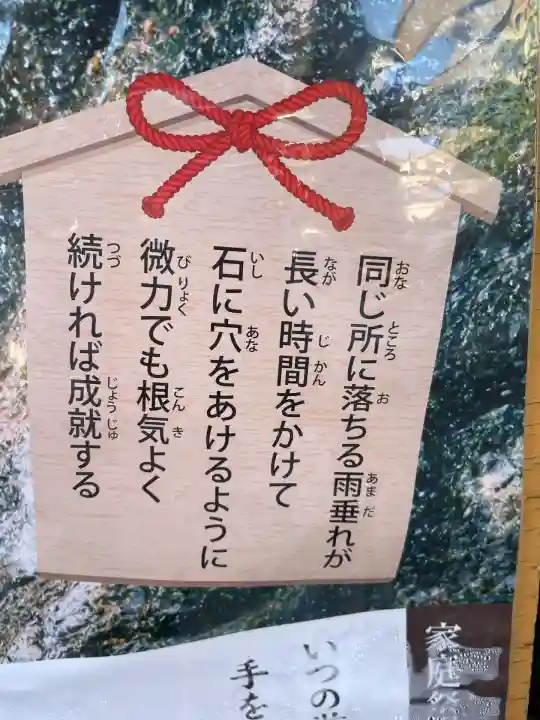 同じ所に落ちる雨垂れが
長い時間をかけて
石に穴をあけるように
微力でも根気よく
続ければ成就する
家庭祭
いつの
手を